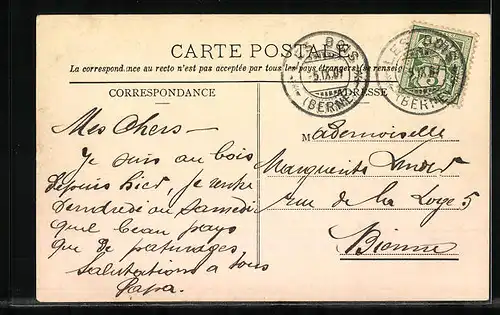 CARTE POSTALE
La correspondance au recto n'est pas acceptée par tous les pays étrangers. (Se renseign
CORRESPONDANCE
ADRESSE
LES BOIS
5.IX.07
(BERNE)
LES BOIS
(BERNE)
5
Mes Chers —
Je suis au bois
depuis hier, je rentre
Vendredi ou Samedi
quel beau pays
que de paturages
Salutations à tous
Papa.
Mademoiselle
Marguerite
rue de la Loge 5
Bienne